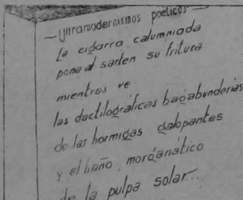 — Ultramodernismos poéticos —
La cigarra calumniada
pone al sarten su fritura
mientras ve
las dactilográficas bagabunderías
de las hormigas galopantes
y el baño morganático
de la pulpa solar...